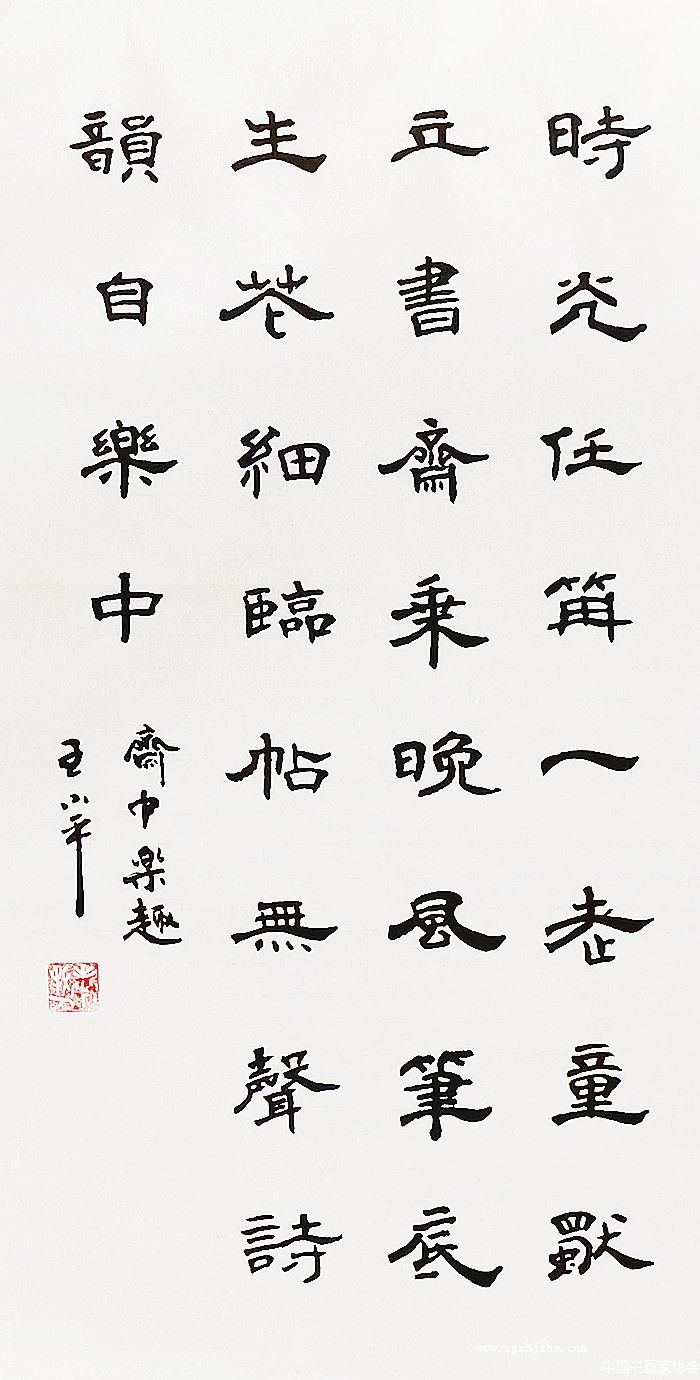 時光任苒一老童獨
立書齋乘晚風筆底
生花細臨帖無聲詩
韻自樂中
齋中樂趣
王小平
中国书画家协会